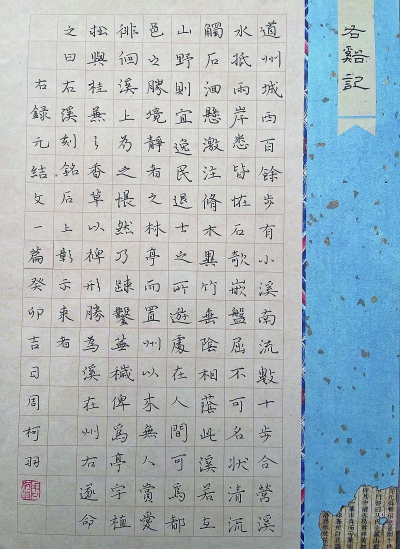 右谿記
道州城西百餘步有小溪南流數十步合營溪
水抵兩岸悉皆怪石欹嵌盤屈不可名狀清流
觸石洄懸激注脩木異竹垂陰相蔭此溪若互
山野則宜逸民退士之所遊處在人間可爲都
邑之勝境靜者之林亭而置州以來無人賞愛
徘徊溪上為之悵然乃踈鑿蕪穢俾爲亭宇植
松與桂兼之香草以裨形勝為溪在州右遂命
之曰右溪刻銘石上彰示來者
右錄元結文一篇癸卯吉日周柯羽